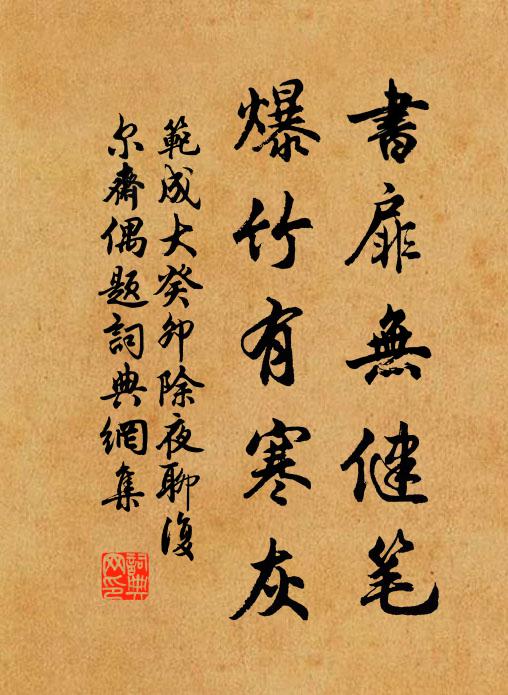 書扉無健笔
爆竹有寒灰
範成大癸卯除夜聊復
尔齋偶題詞典網集
詞典网印